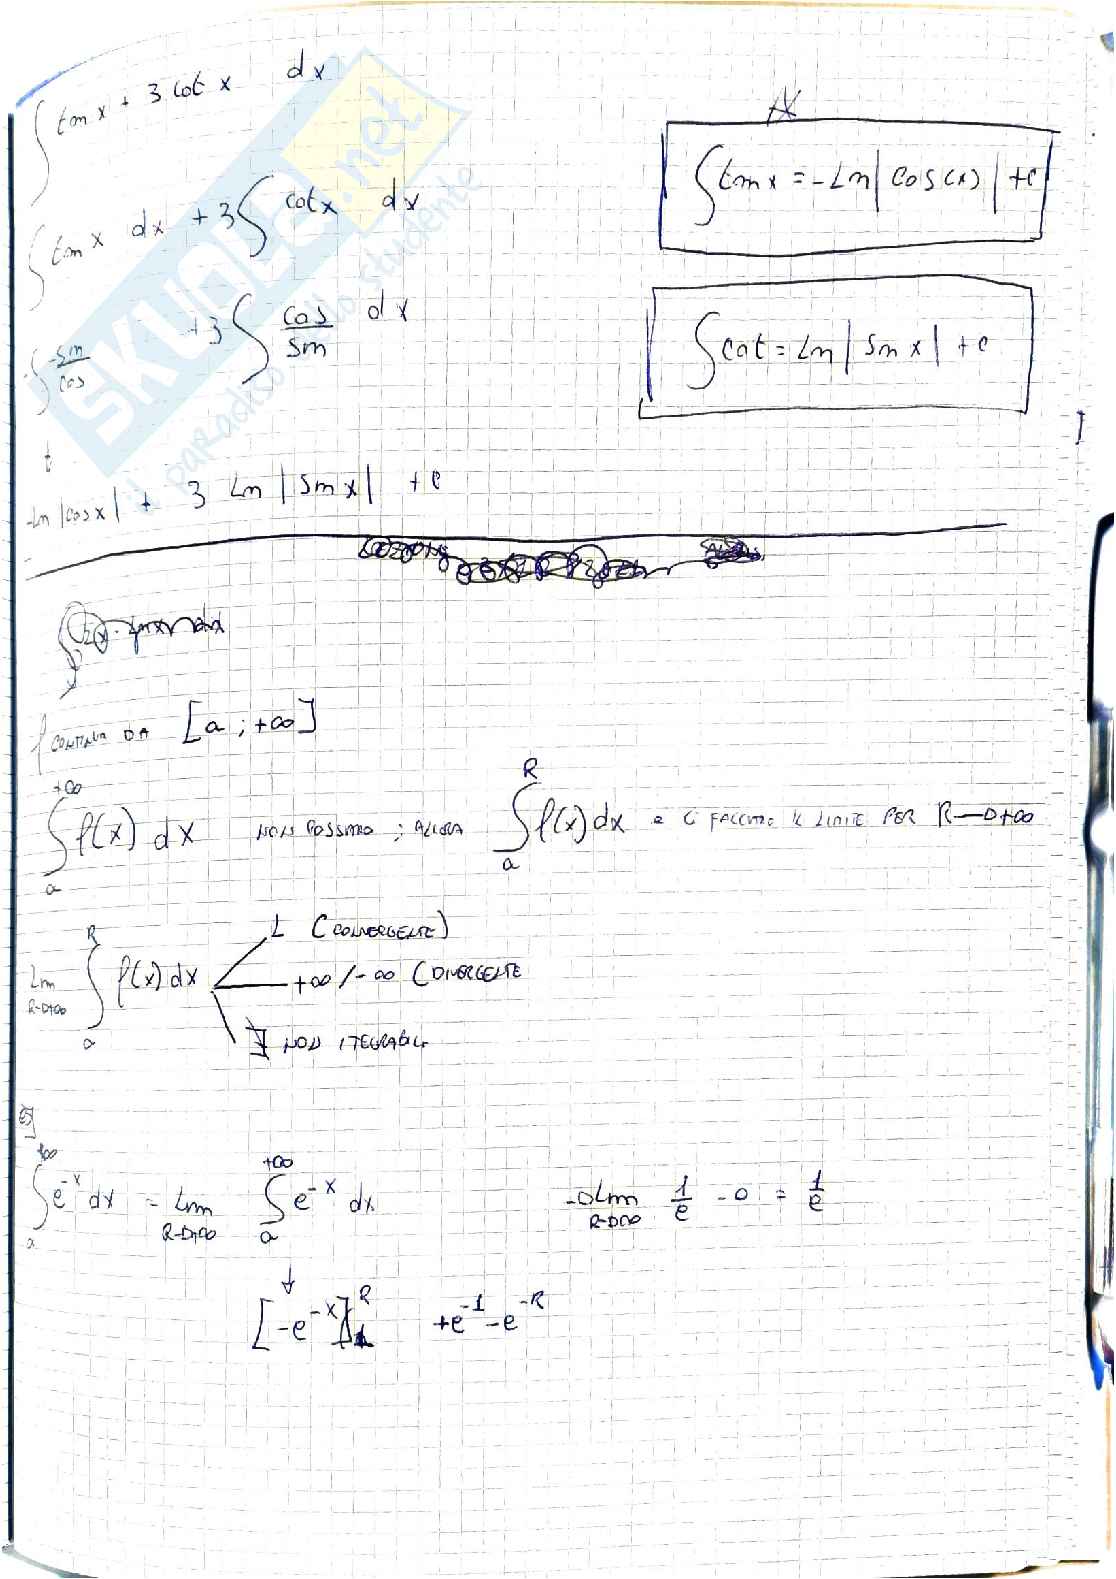 ∫ tan x + 3 cot x dx
∫ tan x dx + 3 ∫ cot x dx
-∫ -sin/cos + 3 ∫ cos/sin dx
-Ln |cos x| + 3 Ln |sin x| + c
∫ tan x = -Ln | cos(x) | + c
∫ cot = Ln | sin x | + c
SKUOLA.net
il paradiso dello studente
f CONTINUA DA [a ; +∞]
∫ₐ^{+∞} f(x) dx NON POSSIAMO ; ALLORA ∫ₐ^R f(x) dx e CI FACCIAMO IL LIMITE PER R→+∞
Lim R→+∞ ∫ₐ^R f(x) dx
L (CONVERGENTE)
+∞ / -∞ (DIVERGENTE
∄ NON ITEGRABILE
ES
∫ₐ^{+∞} e^{-x} dx = Lim R→+∞ ∫ₐ^{+∞} e^{-x} dx → Lim R→+∞ 1/e - 0 = 1/e
↓
[-e^{-x}]₁^R +e^{-1} - e^{-R}